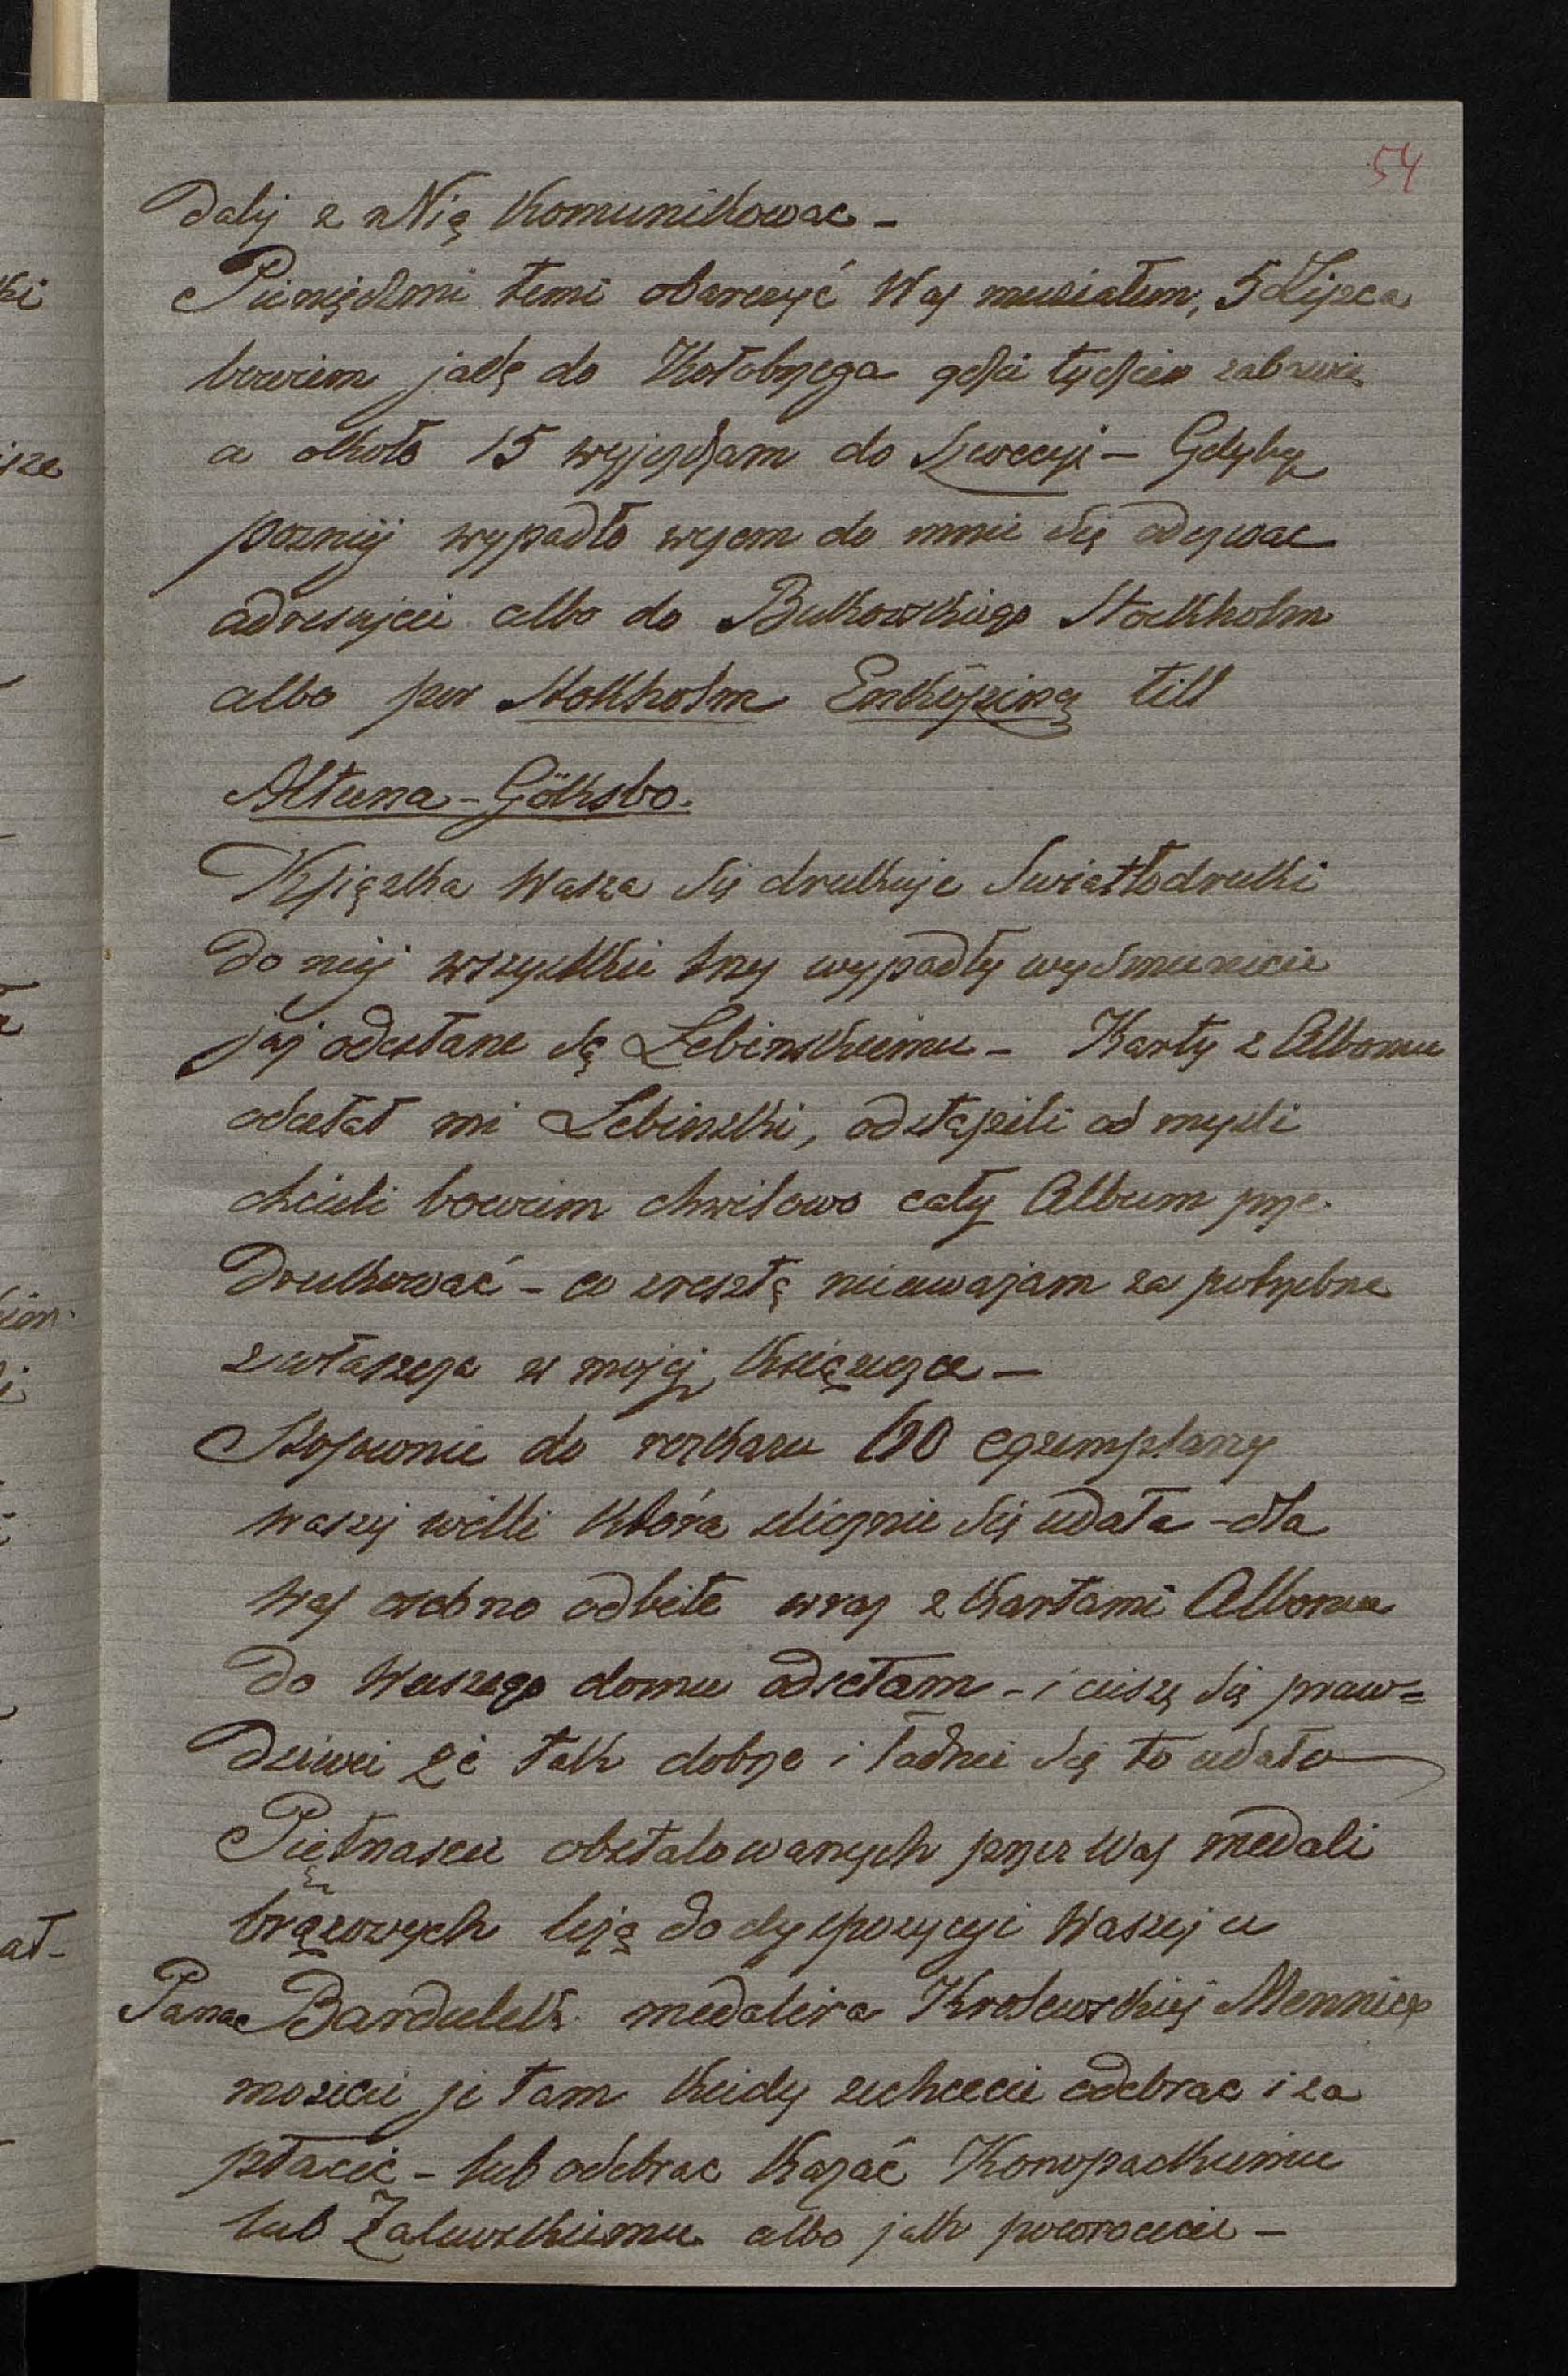 54
dalij z Nią Komunikowac –
Pieniędzmi temi obarczyć Was musiałem, 5 Lipca
bowiem jadę do Kołobrzega gdzie tydzień zabawię
a około 15 wyjeżdżam do Szwecyi – Gdyby
pozniej wypadło wyom do mnie się odezwac
adresujcie albo do Bukowskiego Stockholm
albo per Stokholm Enköping till
Altuna – Gölksbo.
Książka Wasza się drukuje Swiatłodruki
do niej wszystkie trzy wypadły wysmienicie
już odesłane są Lebinskiemu – Karty z Albomu
odesłał mi Lebinski, odstąpili od mysli
chcieli bowiem chwilowo cały Album prze-
drukować – co zresztą nieuważam za potrzebne
zwłaszcza w mojej książczce –
Stosownie do rozkazu 100 egzemplarzy
waszej willi która slicznie się udała – dla
Was osobno odbite wraz z kartami Albomu
do Waszego domu odsełam – i ciszę się praw=
dziwie że tak dobrze i ładnie się to udało
Piętnascie obstalowanych przez Was medali
brązowych leżą do dyspozycyi Waszej u
Pana Barduleck medaliera Krolewskiej Mennicy
mozecie je tam kiedy zechcecie odebrac i za
płacic – lub odebrac kazać Konopackiemu
lub Zalewskiemu albo jak powrocicie –
ki
sze
ał-